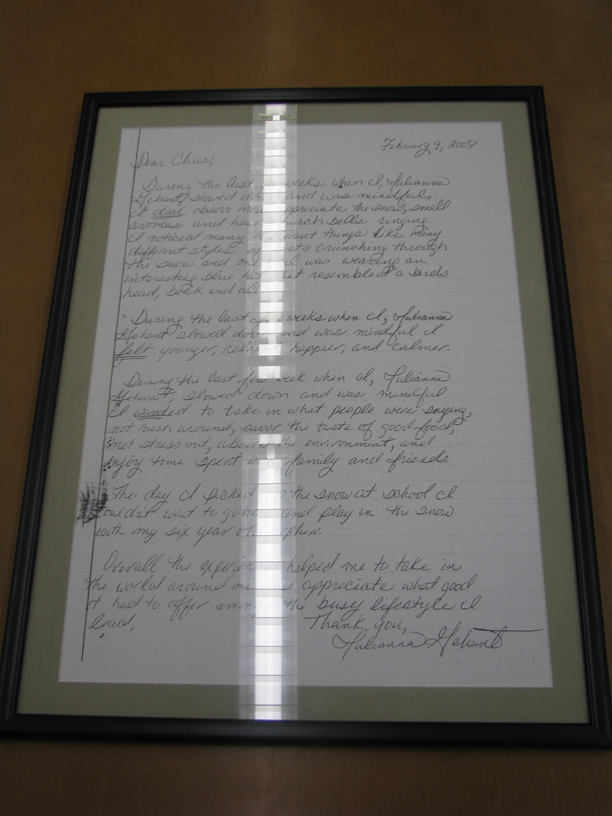 February 9, 2008
Dear Chris,
During the last weeks when I, Julianna
slowed and was mindful
I did observe more appreciate the snow, smell
aromas and hear church bells ringing.
I noticed many things like many
different styles crunching through
the snow and one was wearing an
interesting blue hat that resembled a birds
head, beak and all.
During the last weeks when I, Julianna
slowed down and was mindful I
felt younger, happier, and calmer.
During the last few week when I, Julianna
slowed down and was mindful
I wanted to take in what people were saying,
not rush around, savor the taste of good food,
not stress out, absorb the environment, and
enjoy time spent with family and friends
The day I picked the snow at school I
couldn't wait to go home and play in the snow
with my six year old nephew.
Overall the experience helped me to take in
the world around me and appreciate what good
it had to offer the busy lifestyle I
lead.
Thank you,
Julianna